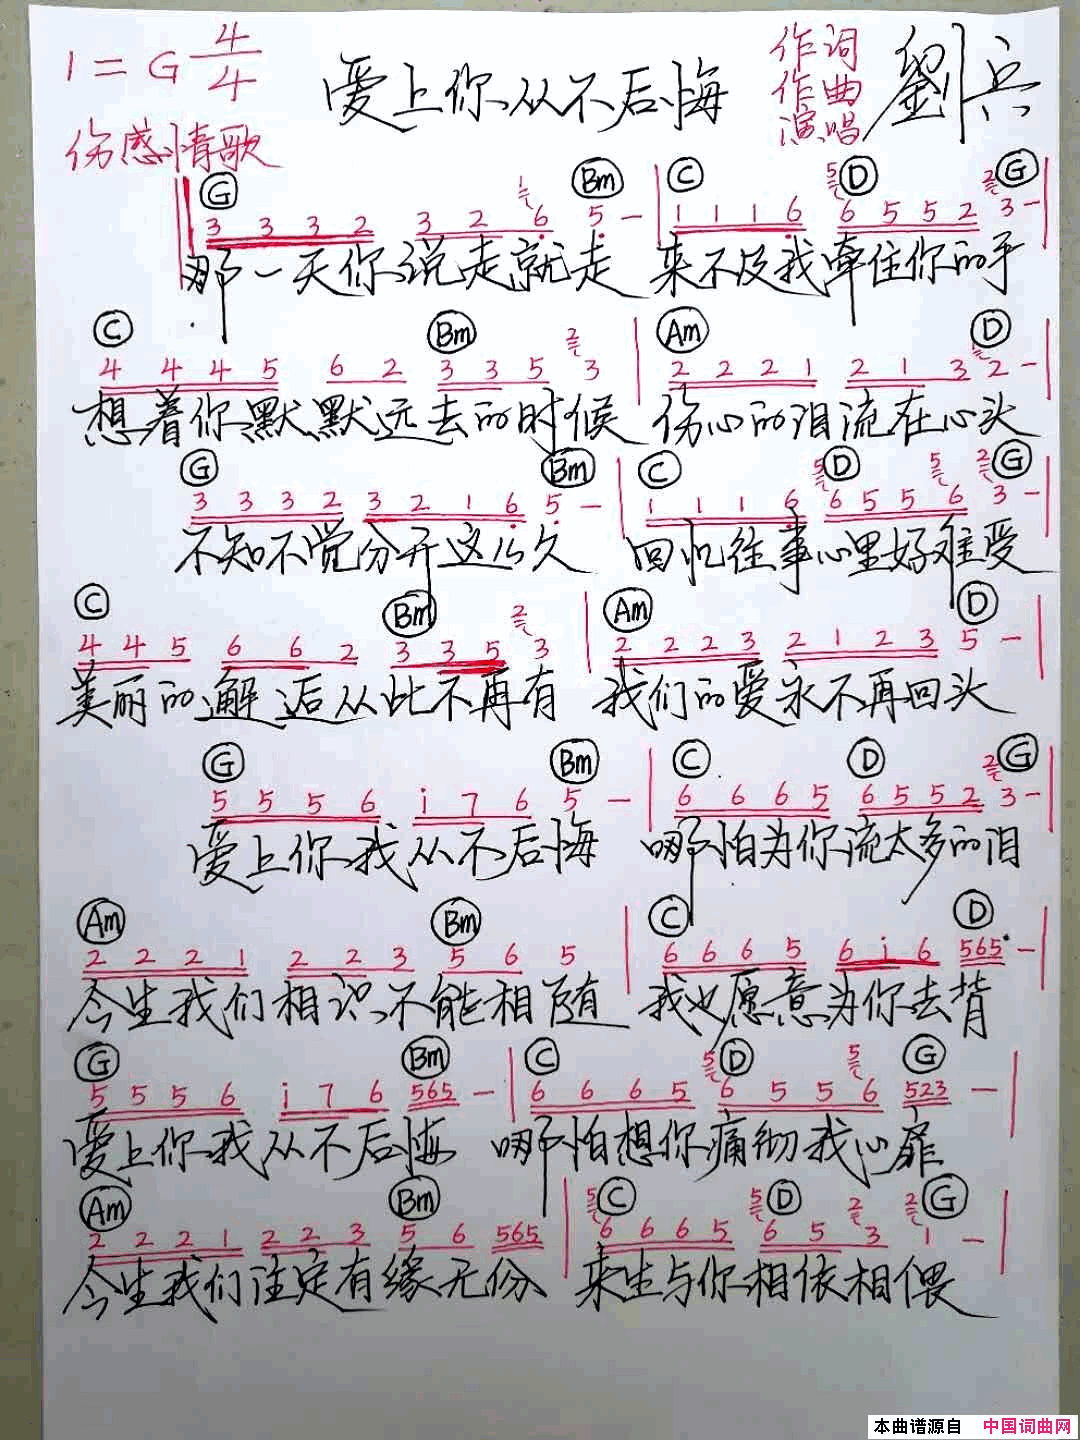 1=G 4/4 爱上你从不后悔 作词 作曲 演唱 劉兵
伤感情歌
G Bm C D G
3 3 3 2 3 2 1 6 5 - 1 1 1 6 5 6 5 5 2 2 3 -
那一天你说走就走 来不及我牵住你的手
C Bm Am D
4 4 4 5 6 2 3 3 5 2 3 2 2 2 1 2 1 3 1 2 -
想着你默默远去的时候 伤心的泪流在心头
G Bm C D G
3 3 3 2 3 2 1 6 5 - 1 1 1 6 5 6 5 5 5 6 2 3 -
不知不觉分开这么久 回忆往事心里好难受
C Bm Am D
4 4 5 6 6 2 3 3 5 2 3 2 2 2 3 2 1 2 3 5 -
美丽的邂逅从此不再有 我们的爱永不再回头
G Bm C D G
5 5 5 6 i 7 6 5 - 6 6 6 5 6 5 5 2 2 3 -
爱上你我从不后悔 哪怕为你流太多的泪
Am Bm C D
2 2 2 1 2 2 3 5 6 5 6 6 6 5 6 i 6 565 -
今生我们相识不能相随 我也愿意为你去背
G Bm C D G
5 5 5 6 i 7 6 565 - 6 6 6 5 5 6 5 5 5 6 523 -
爱上你我从不后悔 哪怕想你痛彻我心扉
Am Bm C D G
2 2 2 1 2 2 3 5 6 565 5 6 6 6 5 5 6 5 2 3 2 1 -
今生我们注定有缘无份 来生与你相依相偎
本曲谱源自 中国词曲网